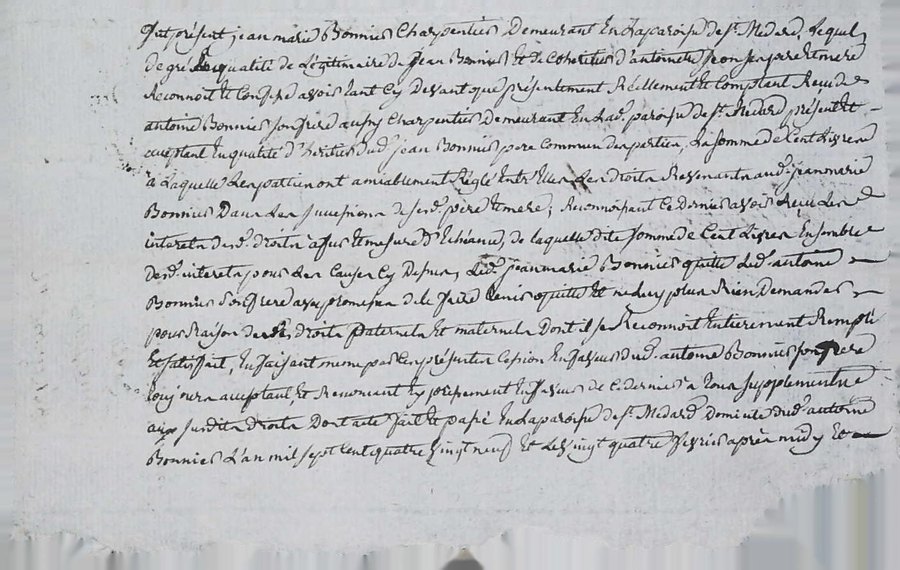 fut présent, jean marie Bonnier Charpentier Demeurant En La paroisse de St. Medard, Lequel
de gré En qualité de Légitimaire de jean Bonnier Et de Cohéritier d'antoinette jeon ses pere Et mere
Reconnoit Et Confesse avoir tant Cy Devant que présentement Réellement Et Comptant Reçu de
antoine Bonnier son frere aussy Charpentier Demeurant En Lad. paroisse de St. Medard présent Et
acceptant En qualité d'héritier dud. jean Bonnier pere Commun des parties, La somme de Cent Livres
à Laquelle Les parties ont amiablement Réglé Entr'Elles Les Droits Revenants aud. jean marie
Bonnier Dans Les successions de sesd. père Et mere; Reconnoissant Ce Dernier avoir Reçu Les
interets desd. droits à fur Et mesure d'Echéance, de laquelle dite somme de Cent Livres Ensemble
desd. interets pour Les Causes Cy Dessus, Led. jean marie Bonnier quitte Led. antoine
Bonnier Son frere avec promesse de le faire tenir quitte Et ne luy plus Rien Demander
pour Raison desd. droits paternels Et maternels Dont il se Reconnoit Entierement Rempli
Et satisfait, En faisant meme par Ces présentes Cession En faveur dud. antoine Bonnier son frere
toujours acceptant, Et Renonçant Expressement En faveur de Ce dernier à tous supplements
aux susdits droits Dont acte fait Et passé En La paroisse de St. Medard Domicile dud. antoine
Bonnier L'an mil sept Cent quatre Vingt neuf Et Le Vingt quatre fevrier après midy Et